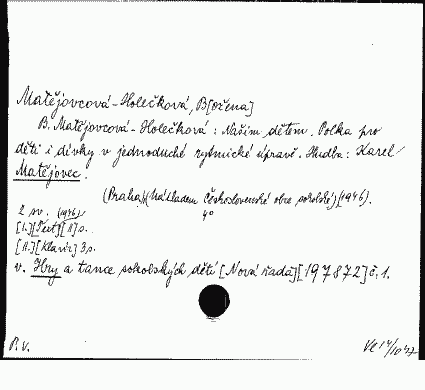 Matějovcová-Holečková, B[ožena]
B. Matějovcová-Holečková: Našim dětem. Polka pro
děti i dívky v jednoduché rytmické úpravě. Hudba: Karel
Matějovec.
(Praha)(Nákladem Československé obce sokolské)(1946).
2 sv. (1946) 4°
[I.][Text][II]s.
[II.][Klavír] 3 s.
v. Hry a tance sokolských dětí [Nová řada][197872] č. 1.
P.V.
Ve 14/10 47